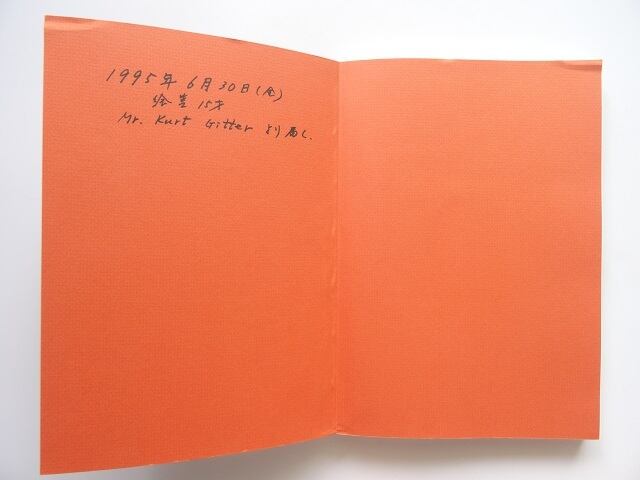 1995年 6月30日(金)
絵里 15才
Mr. Kurt Gitter より届く.